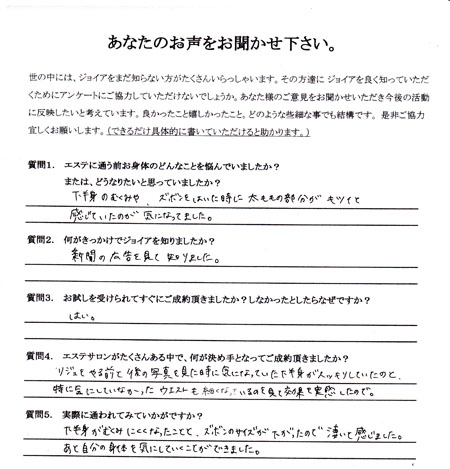 あなたのお声をお聞かせ下さい。
世の中には、ジョイアをまだ知らない方がたくさんいらっしゃいます。その方達に ジョイアを良く知っていただ
くためにアンケートにご協力していただけないでしょうか。あなた様のご意見をお聞かせいただき今後の活動
に反映したいと考えています。良かったこと嬉しかったこと、どのような些細な事でも結構です。 是非ご協力
宜しくお願いします。（できるだけ具体的に書いていただけると助かります。）
質問1． エステに通う前お身体のどんなことを悩んでいましたか？
または、どうなりたいと思っていましたか？
下半身のむくみや、ズボンをはいた時に 太ももの部分が キツイと
感じていたのが 気になってました。
質問2． 何がきっかけでジョイアを知りましたか？
新聞の広告を見て 知りました。
質問3． お試しを受けられてすぐにご成約頂きましたか？しなかったとしたらなぜですか？
はい。
質問4． エステサロンがたくさんある中で、何が決め手となってご成約頂きましたか？
をやる前と後の写真を見た時に気になっていた下半身がスッキリしていたのと、
特に気にしていなかった ウエストも 細くなっているのを見て効果を実感したので。
質問5． 実際に通われてみていかがですか？
下半身がむくみにくくなったことと、ズボンのサイズが下がったので 凄いて感じました。
あと自分の身体を気にしていくことができました。